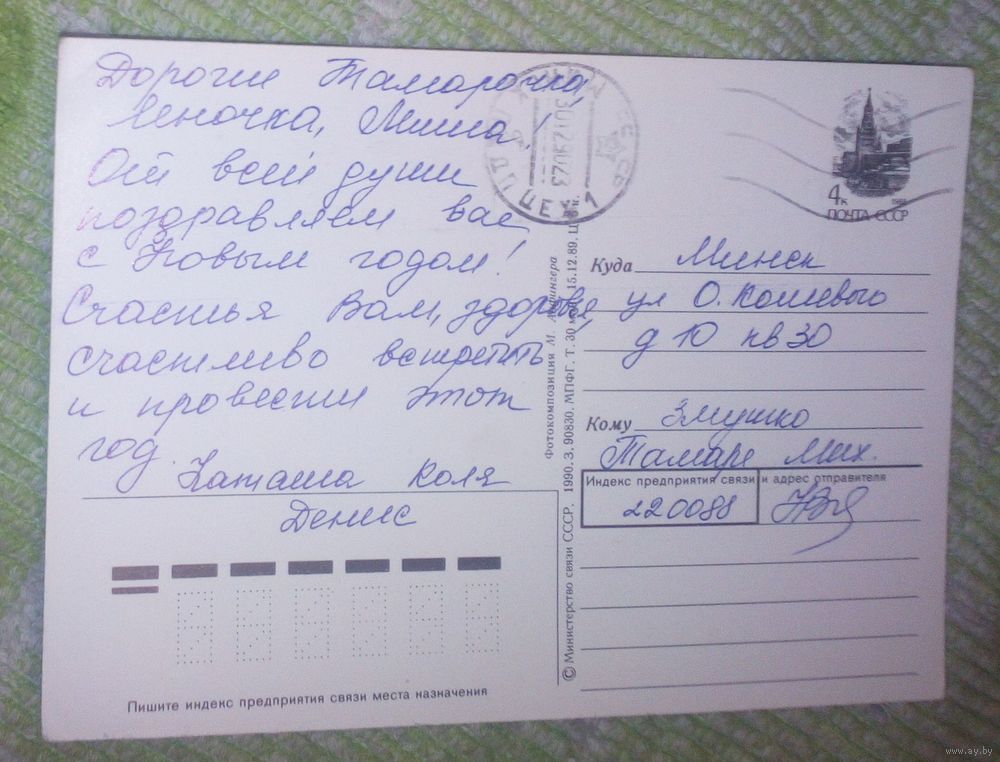 Дорогие Тамарочка,
Леночка, Миша!
От всей души
поздравляем вас
с Новым годом!
Счастья Вам, здоровья,
счастливо встретить
и провести этот
год.
Наташа Коля
Денис
Пишите индекс предприятия связи места назначения
© Министерство связи СССР. 1990. З. 90830. МПФГ. Т. 30 15.12.89.
Фотокомпозиция М.
ЦЕХ 1
4к
1988
ПОЧТА СССР
Куда Минск
ул О. Кошевого
д 10 кв 30
Кому Змушко
Тамаре Мих.
Индекс предприятия связи и адрес отправителя
220088
www.ay.by